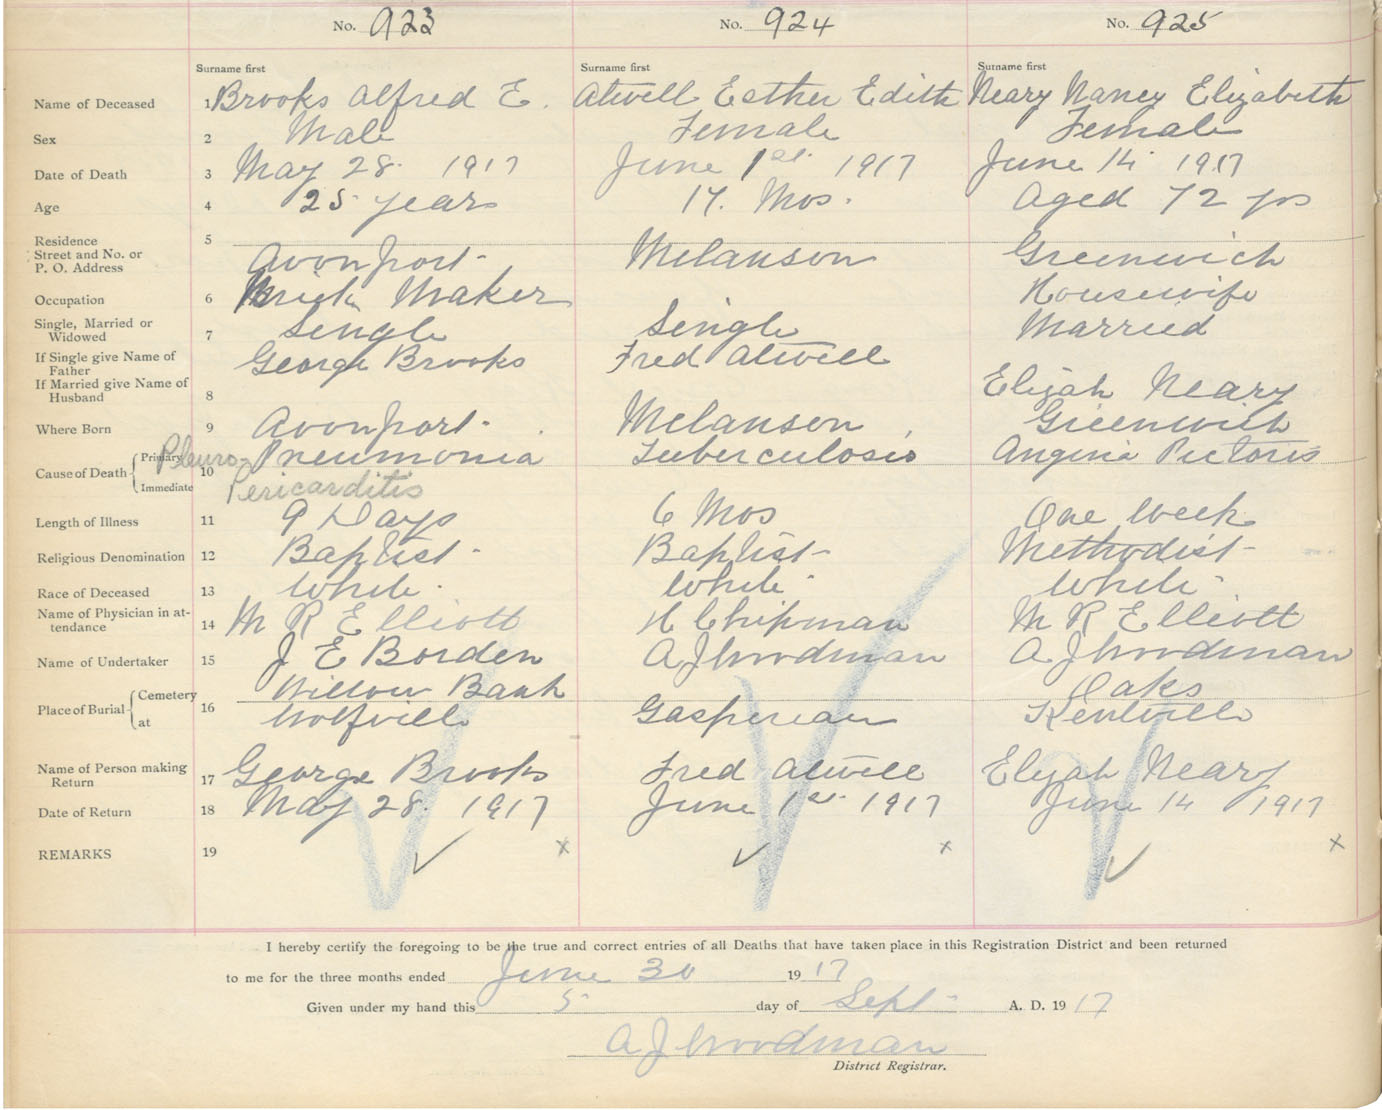 No. 923 No. 924 No. 925
Surname first Surname first Surname first
Name of Deceased 1 Brooks Alfred E. Atwell Esther Edith Neary Nancy Elizabeth
Sex 2 Male Female Female
Date of Death 3 May 28. 1917 June 1st. 1917 June 14. 1917
Age 4 25 years 17. Mos. Aged 72 yrs
Residence 5
Street and No. or
P. O. Address Avonport - Melanson Greenwich
Occupation 6 Brick Maker Housewife
Single, Married or
Widowed 7 Single Single Married
If Single give Name of
Father George Brooks Fred Atwell
If Married give Name of
Husband 8 Elijah Neary
Where Born 9 Avonport - Melanson Greenwich
Cause of Death Primary 10 Pleuro-Pneumonia Tuberculosis Angina Pictoris
Immediate Pericarditis
Length of Illness 11 9 Days 6 Mos One Week
Religious Denomination 12 Baptist - Baptist - Methodist -
Race of Deceased 13 White White White
Name of Physician in at-
tendance 14 M R Elliott H Chipman M R Elliott
Name of Undertaker 15 J E Borden A J Woodman A J Woodman
Place of Burial Cemetery 16 Willow Bank Oaks
at Wolfville Gaspereau Kentville
Name of Person making
Return 17 George Brooks Fred Atwell Elijah Neary
Date of Return 18 May 28. 1917 June 1st. 1917 June 14 1917
REMARKS 19 ✓ x ✓ x ✓ x
I hereby certify the foregoing to be the true and correct entries of all Deaths that have taken place in this Registration District and been returned
to me for the three months ended June 30 1917
Given under my hand this 5 day of Sept - A. D. 1917
A J Woodman
District Registrar.